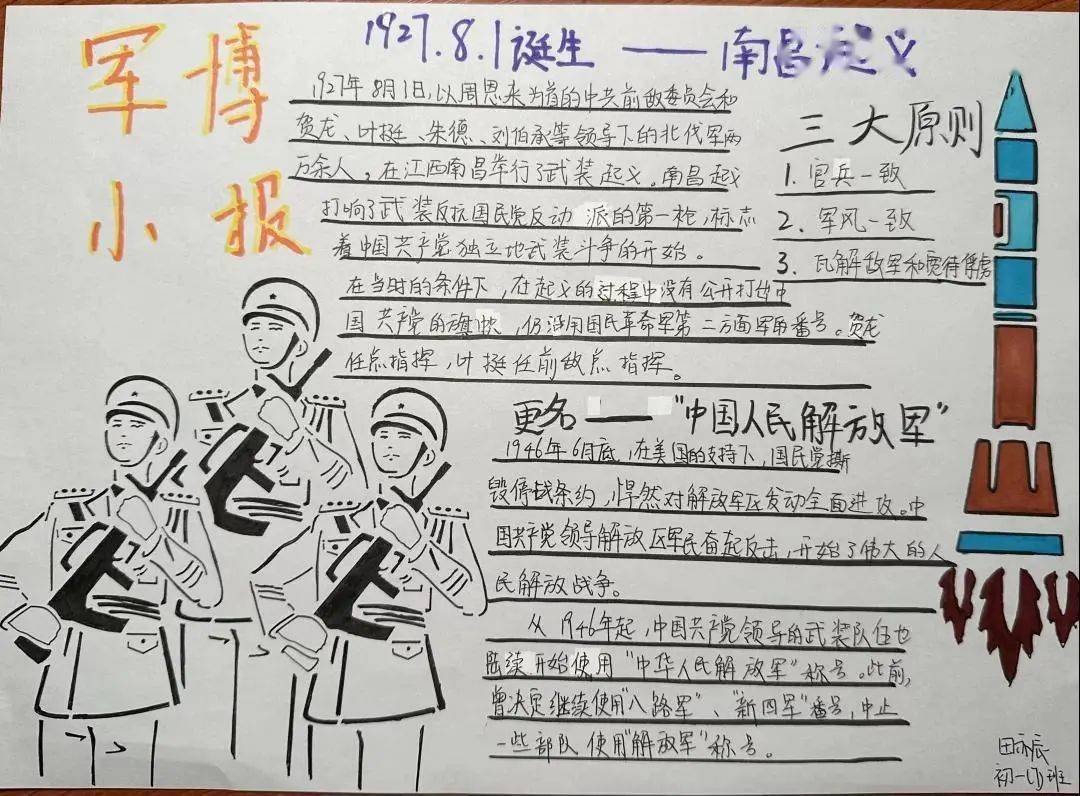 军博
小报
1927.8.1诞生——南昌起义
1927年8月1日,以周恩来为首的中共前敌委员会和
贺龙、叶挺、朱德、刘伯承等领导下的北伐军两
万余人,在江西南昌举行了武装起义。南昌起义
打响了武装反抗国民党反动派的第一枪,标志
着中国共产党独立地武装斗争的开始。
在当时的条件下,在起义的过程中没有公开打出中
国共产党的旗帜,仍沿用国民革命军第二方面军的番号。贺龙
任总指挥,叶挺任前敌总指挥。
三大原则
1.官兵一致
2.军风一致
3.瓦解敌军和宽待俘虏
更名——“中国人民解放军”
1946年6月底,在美国的支持下,国民党撕
毁停战条约,悍然对解放军区发动全面进攻。中
国共产党领导解放区军民奋起反击,开始了伟大的人
民解放战争。
从1946年起,中国共产党领导的武装队伍也
陆续开始使用“中华人民解放军”称号。此前,
曾决定继续使用“八路军”、“新四军”番号,中止
一些部队使用“解放军”称号。
田亦辰
初一(1)班